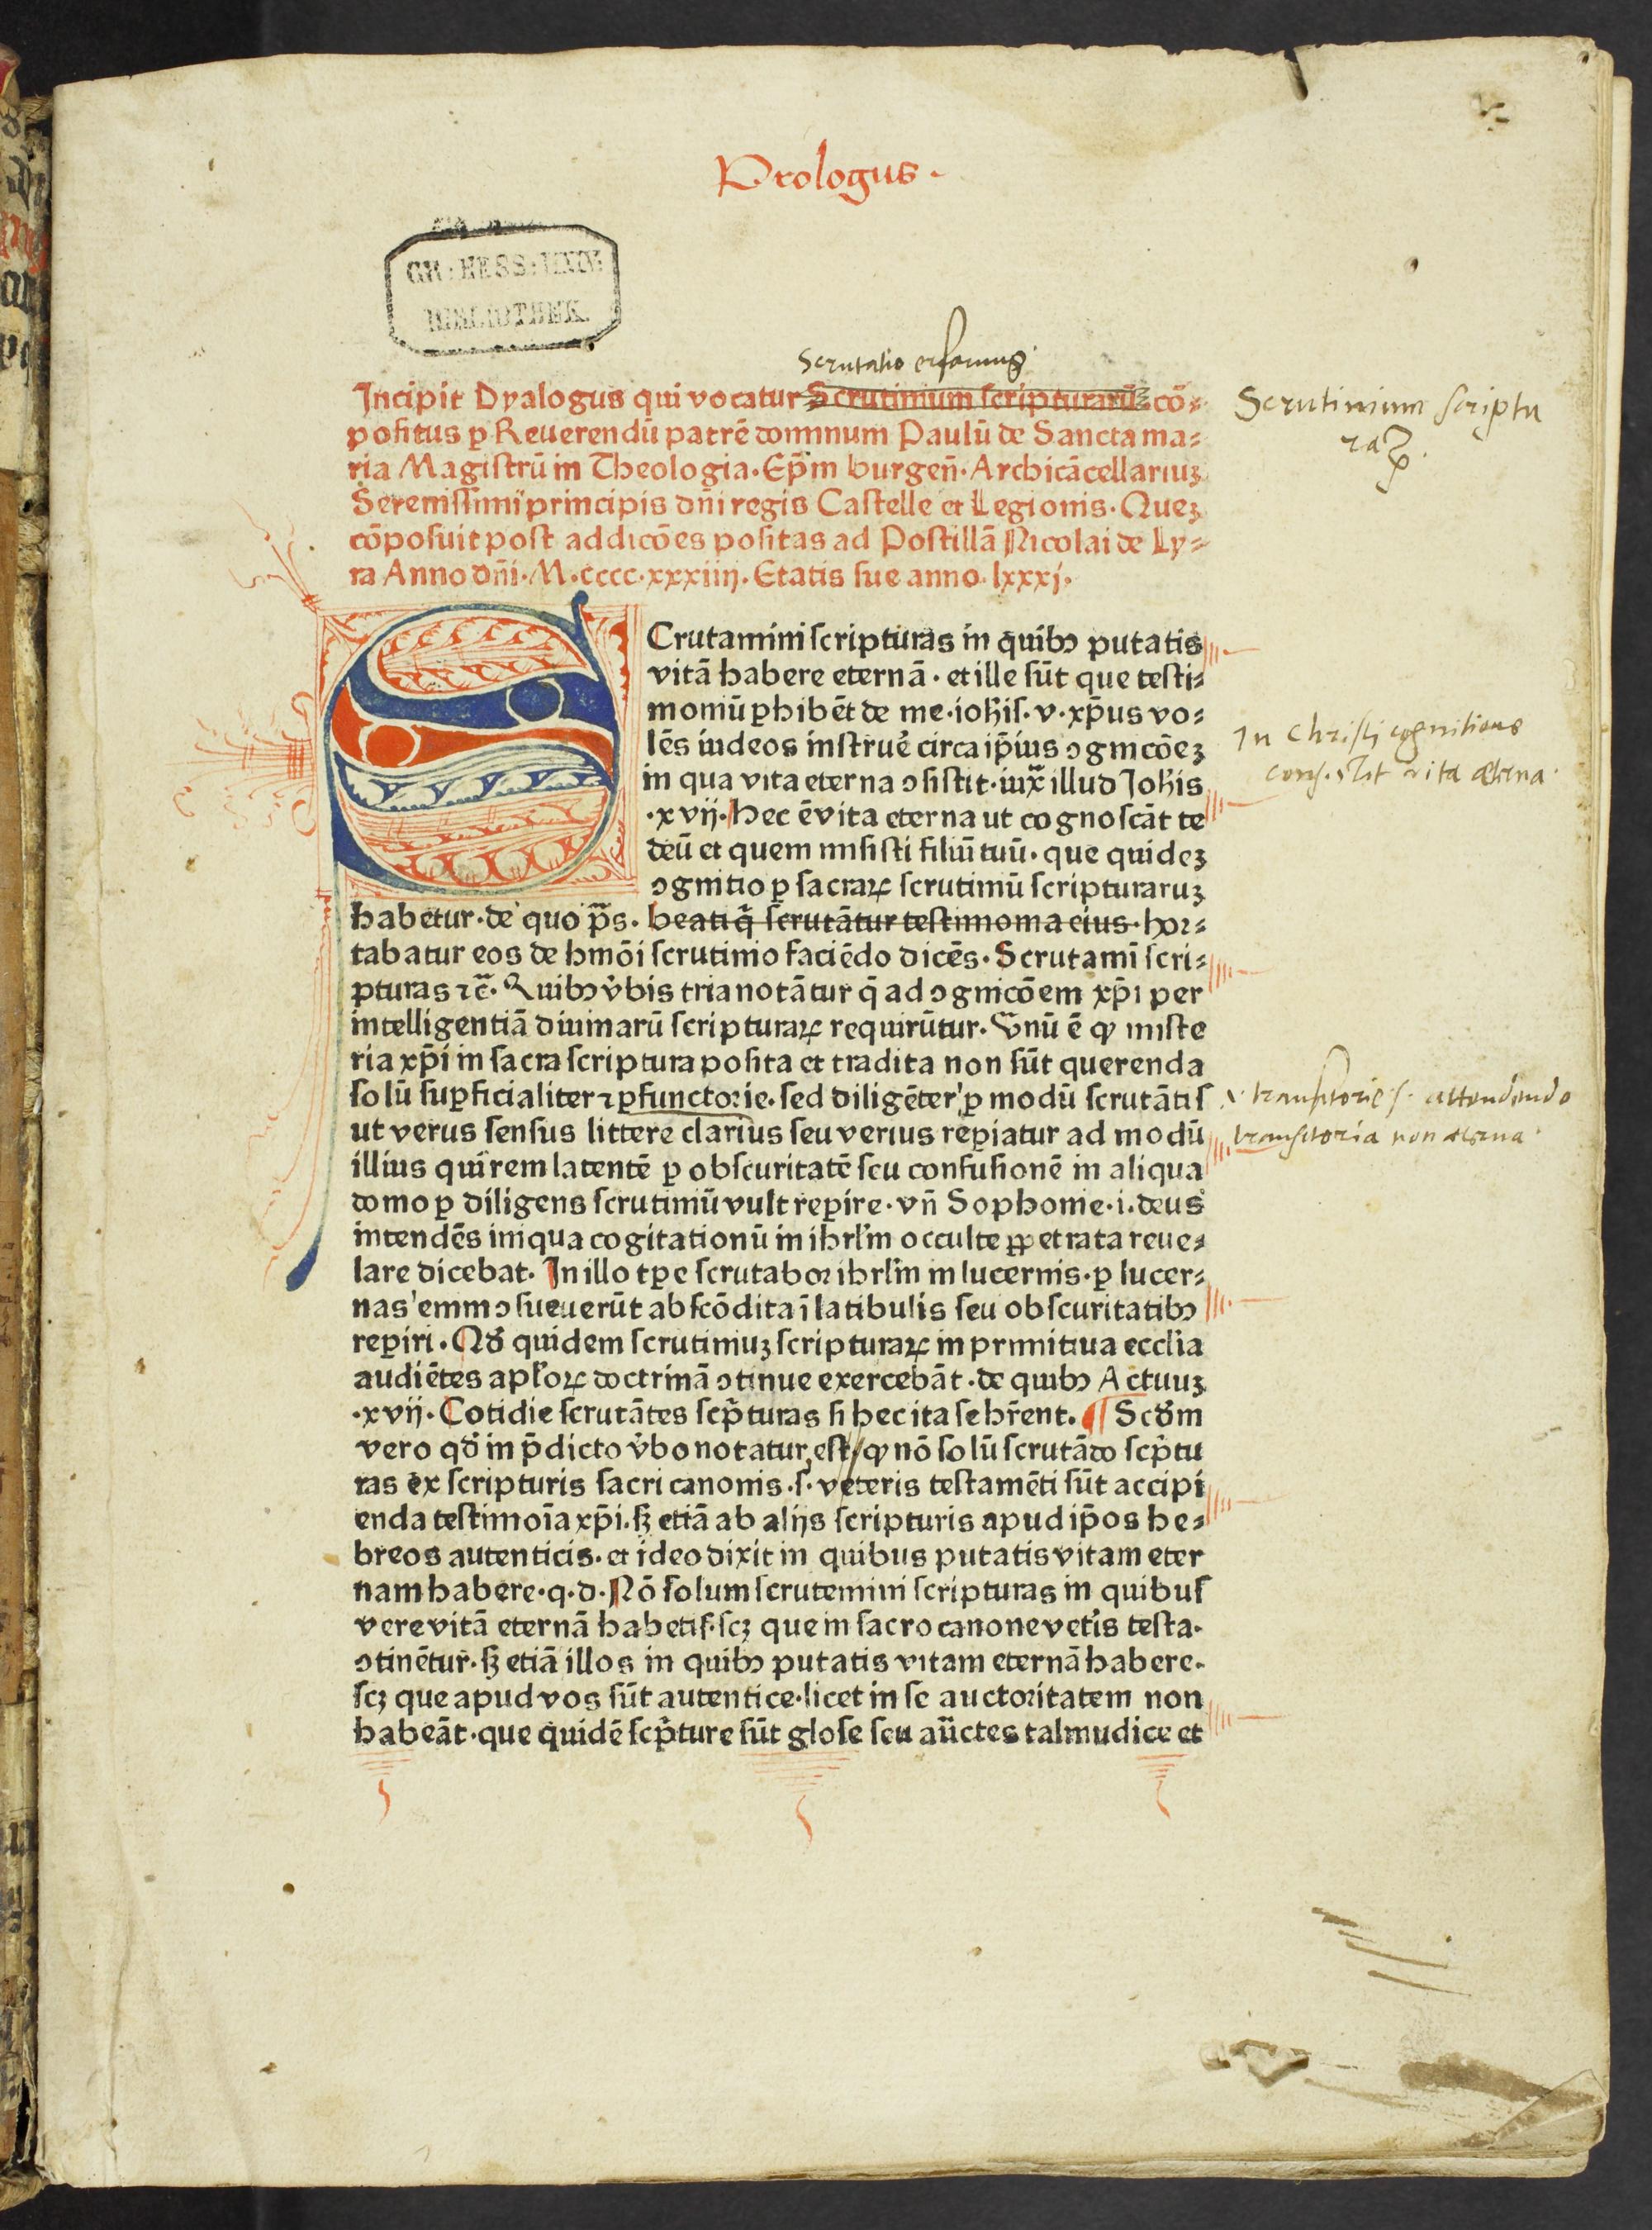 Prologus.
GR: HESS: UNIV:
BIBLIOTHEK.
Scrutatio
Incipit Dyalogus qui vocatur Scrutinium scripturarū cō⸗
positus ꝑ Reuerendū patrē dominum Paulū de Sancta ma⸗
ria Magistrū in Theologia. Ep̄m burgen̄. Archicācellariuꝫ
Serenissimi principis dn̄i regis Castelle et Legionis. Queꝫ
cōposuit post addicōes positas ad Postillā Nicolai de Ly⸗
ra Anno dn̄i. M. cccc. xxxiiij. Etatis sue anno. lxxxj.
Scrutinium scriptu
raꝝ.
SCrutamini scripturas in quibꝰ putatis
vitā habere eternā. et ille sūt que testi⸗
moniū ꝑhibēt de me. ioh̄is. v. xp̄us vo⸗
lēs iudeos instruē circa ip̄ius ꝯgnicōeꝫ
in qua vita eterna ꝯsistit. iux̄ illud Ioh̄is
.xvij. Hec ē vita eterna ut cognoscāt te
deū et quem misisti filiū tuū. que quideꝫ
ꝯgnitio ꝑ sacraꝝ scrutiniū scripturaruꝫ
In Christi cognitione
consistit vita æterna.
habetur. de quo p̄s. beati q̄ scrutātur testimonia eius. hor⸗
tabatur eos de hmōi scrutinio faciēdo dicēs. Scrutamī scri⸗
pturas ⁊c̄. Quibꝰ v̄bis tria notātur q̄ ad ꝯgnicōem xp̄i per
intelligentiā diuinarū scripturaꝝ requirūtur. Vnū ē ꝙ miste
ria xp̄i in sacra scriptura posita et tradita non sūt querenda
solū suꝑficialiter ⁊ ꝑfunctorie. sed diligēter ꝑ modū scrutātis
ut verus sensus littere clarius seu verius reꝑiatur ad modū
illius qui rem latentē ꝑ obscuritatē seu confusionē in aliqua
domo ꝑ diligens scrutiniū vult reꝑire. vn̄ Sophonie. i. deus
intendēs iniqua cogitationū in ihrlm̄ occulte ꝑpetrata reue⸗
lare dicebat. In illo tꝑe scrutabor ihrlm̄ in lucernis. ꝑ lucer⸗
nas enim ꝯsueuerūt abscōdita ī latibulis seu obscuritatibꝰ
reꝑiri. Qd̄ quidem scrutiniuꝫ scripturaꝝ in primitiua ecclīa
audiētes apl̄oꝝ doctrinā ꝯtinue exercebāt. de quibꝰ Actuuꝫ
.xvij. Cotidie scrutātes scp̄turas si hec ita se hr̄ent. ¶ Scdm̄
vero qd̄ in p̄dicto v̄bo notatur, est ꝙ nō solū scrutādo scp̄tu
ras ex scripturis sacri canonis. s. veteris testamēti sūt accipi
enda testimoīa xp̄i. sꝫ etiā ab alijs scripturis apud ip̄os he⸗
breos autenticis. et ideo dixit in quibus putatis vitam eter
nam habere. q. d. Nō solum scrutemini scripturas in quibus
vere vitā eternā habetis. scꝫ que in sacro canone vet̄is testa.
ꝯtinētur. sꝫ etiā illos in quibꝰ putatis vitam eternā habere.
scꝫ que apud vos sūt autentice. licet in se auctoritatem non
habeāt. que quidē scp̄ture sūt glose seu au̅ctes talmudice et
transitorie s. attendendo
transitoria non æterna.